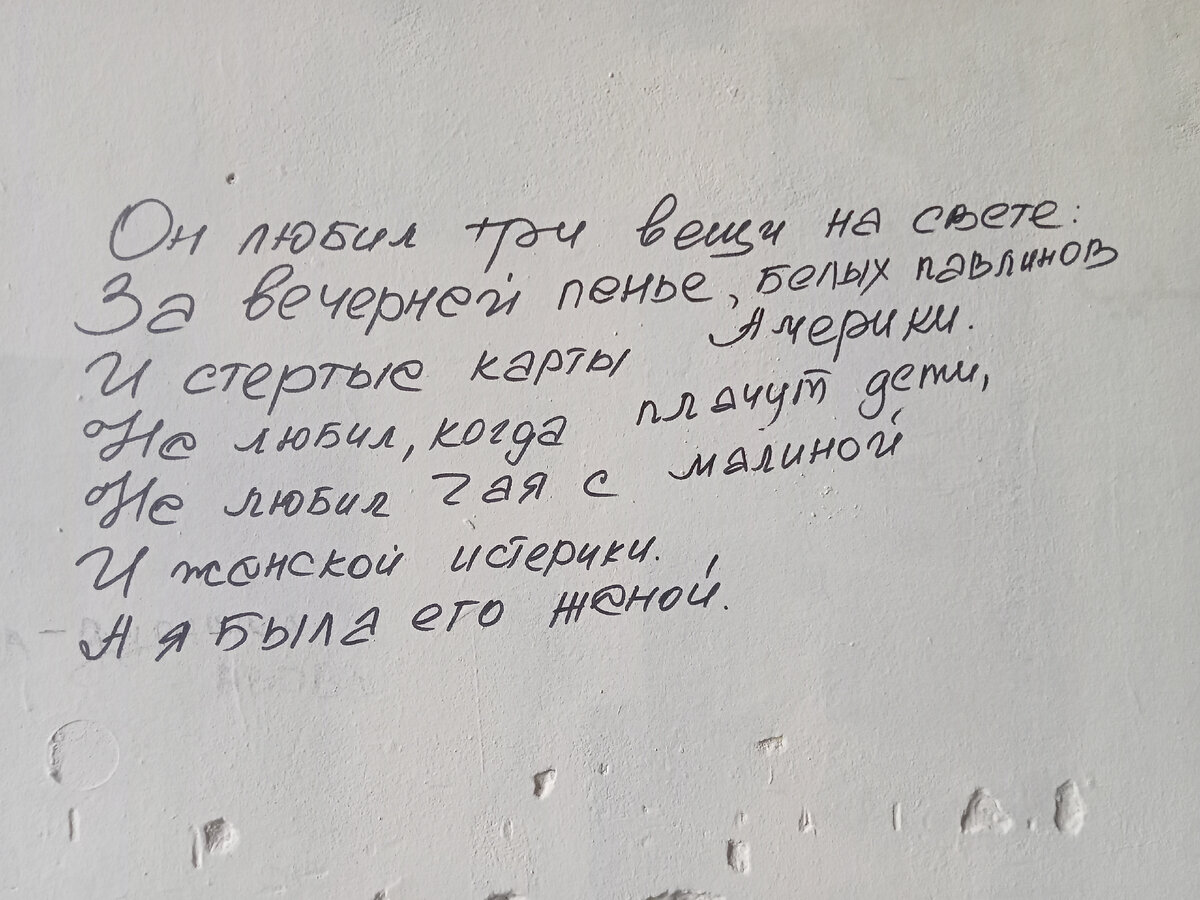 Он любил три вещи на свете:
За вечерней пенье, белых павлинов
И стертые карты Америки.
Не любил, когда плачут дети,
Не любил чая с малиной
И женской истерики.
А я была его женой.